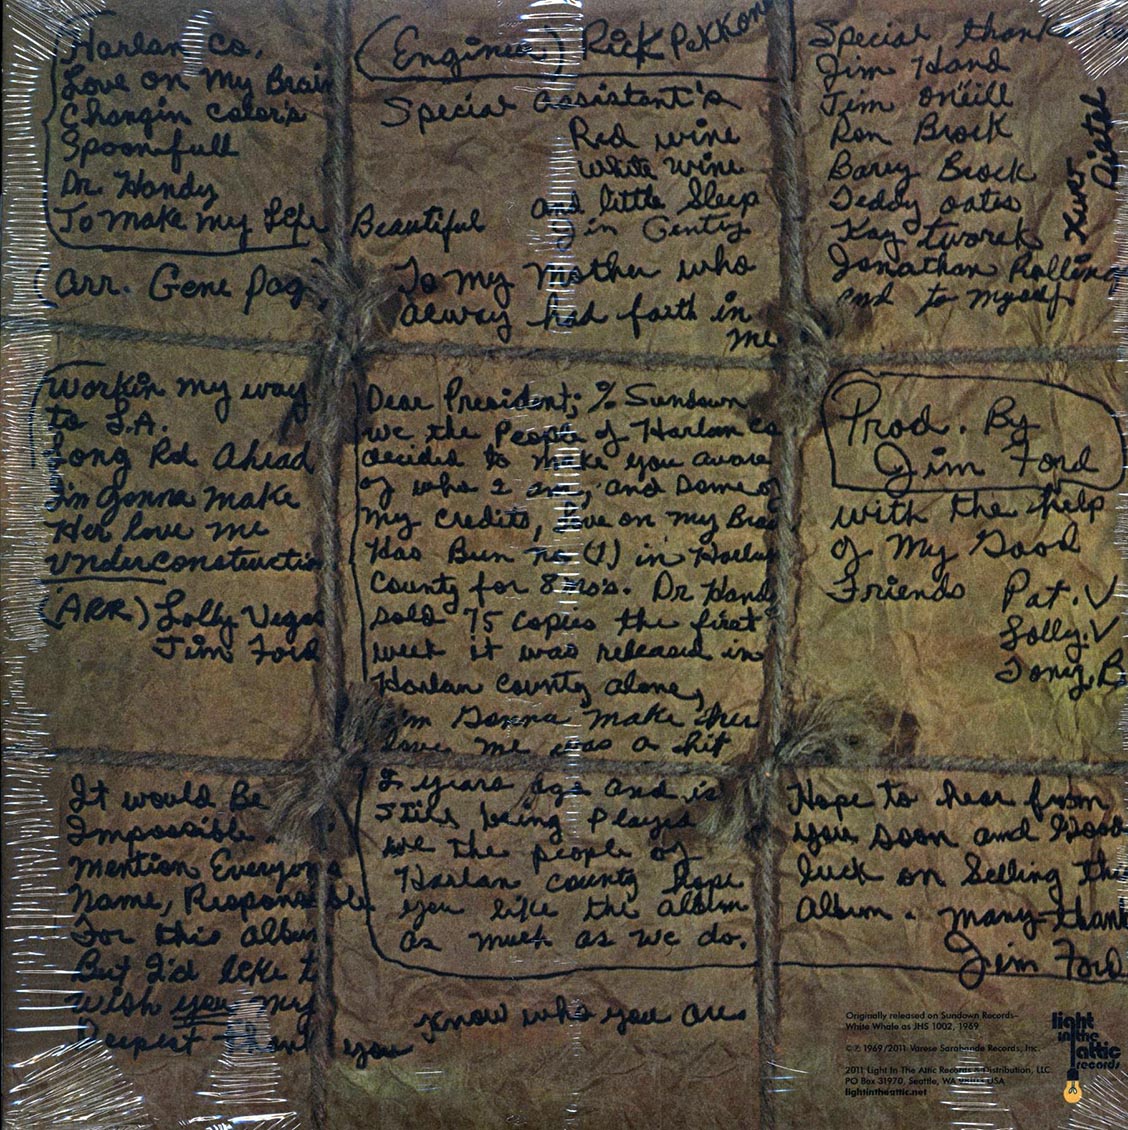 Harlan Co.
Love on My Brain
Changin Color's
Spoonfull
Dr. Handy
To Make my Life Beautiful
(Arr. Gene Page)
(Engineer) Rick Pekkonen
Special Assistant's
Red wine
White wine
and little Sleep
Jin Gentry
To my Mother who
always had faith in
me
Special thanks to
Jim Hand
Jim O'neill
Ron Brock
Barry Brock
Teddy oates
Kay Tworek
Jonathan Rollins
and to myself
Kurt
Workin my way
to L.A.
Long Rd Ahead
I'm Gonna Make
Her love me
Underconstruction
(ARR) Lolly Vegas
Jim Ford
Dear President; % Sundown
we the People of Harlan Co
decided to make you aware
of who I am, and some of
my Credits, Love on my Brain
Has Bun no (1) in Harlan
County for 8 mo's. Dr Handy
sold 75 copies the first
week it was released in
Harlan County alone,
I'm Gonna make her
love me was a hit
2 years ago and is
still being Played
we the people of
Harlan county hope
you like the album
as much as we do.
Prod. By
Jim Ford
with the help
of My Good
Friends Pat. V
Lolly. V
Tony. B
It would Be
Impossible
mention Everyone's
Name, Responsible
For this album
But I'd like to
wish you my
Deepest Thank you
know who you are
Hope to hear from
you soon and Good
luck on Selling this
Album. Many-thanks
Jim Ford
Originally released on Sundown Records–
White Whale as JHS 1002, 1969
© ℗ 1969/2011 Varese Sarabande Records, Inc.
2011 Light In The Attic Records & Distribution, LLC
PO Box 31970, Seattle, WA 98103 USA
lightintheattic.net
light
in the
attic
records